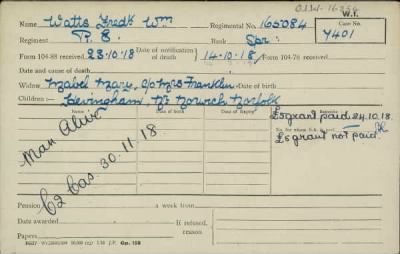 0134-16354
Name Watts Fredk Wm Regimental No. 165084 W.I.
Case No. 7401
Regiment R. E. Rank Spr:
Form 104-88 received 23.10.18 Date of notification of death 14.10.18 Form 104-76 received
Date and cause of death
Widow Mabel Mary, c/o Mrs Franklin Date of birth
Children:— Hevingham, Nr Norwich Norfolk
Name Date of Birth Name Date of Birth
£5 grant paid 24.10.18.
£5 grant not paid
Man Alive
C2 Cas 30.11.18
Pension a week from
Date awarded If refused, reason
Papers
Gp. 158